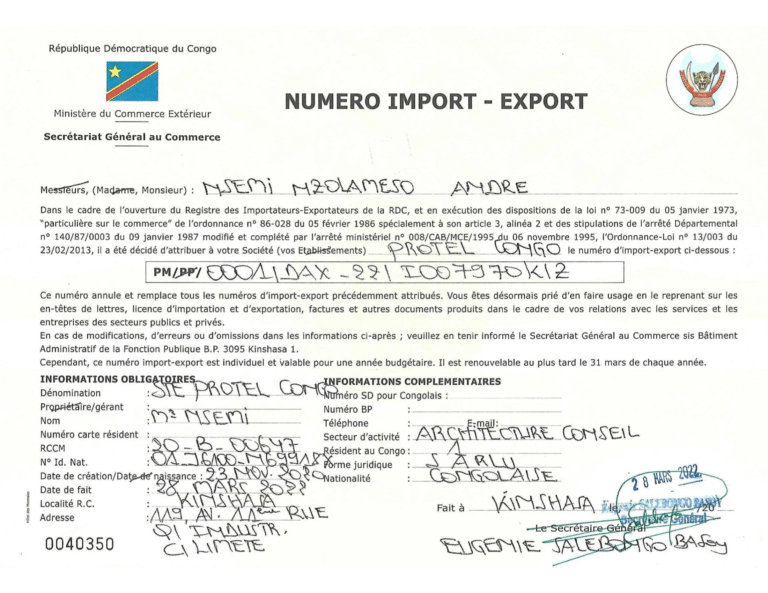 République Démocratique du Congo
Ministère du Commerce Extérieur
Secrétariat Général au Commerce
NUMERO IMPORT - EXPORT
Messieurs, (Madame, Monsieur) : NSEMI NZOLAMESO ANDRE
Dans le cadre de l'ouverture du Registre des Importateurs-Exportateurs de la RDC, et en exécution des dispositions de la loi n° 73-009 du 05 janvier 1973,
"particulière sur le commerce" de l'ordonnance n° 86-028 du 05 février 1986 spécialement à son article 3, alinéa 2 et des stipulations de l'arrêté Départemental
n° 140/87/0003 du 09 janvier 1987 modifié et complété par l'arrêté ministériel n° 008/CAB/MCE/1995 du 06 novembre 1995, l'Ordonnance-Loi n° 13/003 du
23/02/2013, il a été décidé d'attribuer à votre Société (vos Etablissements) PROTEL CONGO le numéro d'import-export ci-dessous :
PM/PP/ 0001/DAX-22/I007970K/Z
Ce numéro annule et remplace tous les numéros d'import-export précédemment attribués. Vous êtes désormais prié d'en faire usage en le reprenant sur les
en-têtes de lettres, licence d'importation et d'exportation, factures et autres documents produits dans le cadre de vos relations avec les services et les
entreprises des secteurs publics et privés.
En cas de modifications, d'erreurs ou d'omissions dans les informations ci-après ; veuillez en tenir informé le Secrétariat Général au Commerce sis Bâtiment
Administratif de la Fonction Publique B.P. 3095 Kinshasa 1.
Cependant, ce numéro import-export est individuel et valable pour une année budgétaire. Il est renouvelable au plus tard le 31 mars de chaque année.
INFORMATIONS OBLIGATOIRES
Dénomination : STE PROTEL CONGO
Propriétaire/gérant :
Nom : Mr NSEMI
Numéro carte résident :
RCCM : 20-B-00647
N° Id. Nat. :
Date de création/Date de naissance : 23 NOV. 2020
Date de fait : 28 MARS 2022
Localité R.C. : KINSHASA
Adresse : 119, AV. 11ème RUE
QI INDUSTR.
C/ LIMETE
0040350
INFORMATIONS COMPLEMENTAIRES
Numéro SD pour Congolais :
Numéro BP :
Téléphone : E-mail:
Secteur d'activité : ARCHITECTURE CONSEIL
Résident au Congo :
Forme juridique : SARLU
Nationalité : CONGOLAISE
28 MARS 2022
Fait à KINSHASA le 20
Secrétaire Général
Le Secrétaire Général
EUGENIE SALEBONGO BASOY